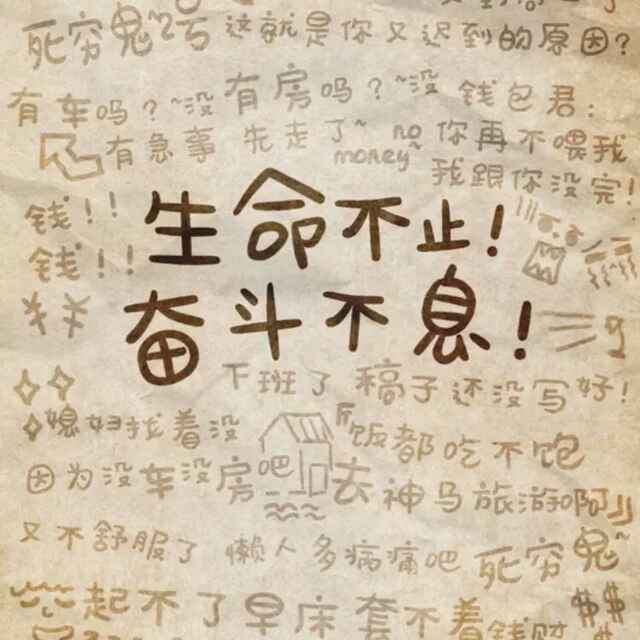 死穷鬼 这就是你又迟到的原因?
有车吗?~没 有房吗?~没 钱包君:
有急事 先走了~ no money~ 你再不喂我
我跟你没完!
钱!!
钱!!
生命不止!
奋斗不息!
下班了 稿子还没写好!
媳妇找着没
饭都吃不饱
因为没车没房吧 去神马旅游啊
又不舒服了 懒人多病痛吧 死穷鬼~
起不了早床 套不着
$$